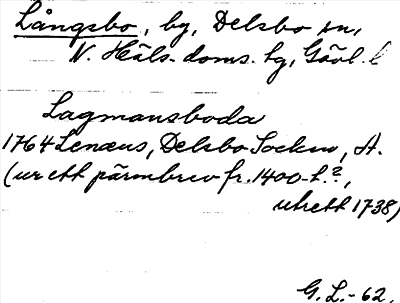 Långsbo, by, Delsbo sn,
N. Häls. doms. hg, Gävl. l
Lagmansboda
1764 Lenæus, Delsbo Socken,
(ur ett pärmbrev fr. 1400-t.?,
utrett 1738)
G. L. -62.